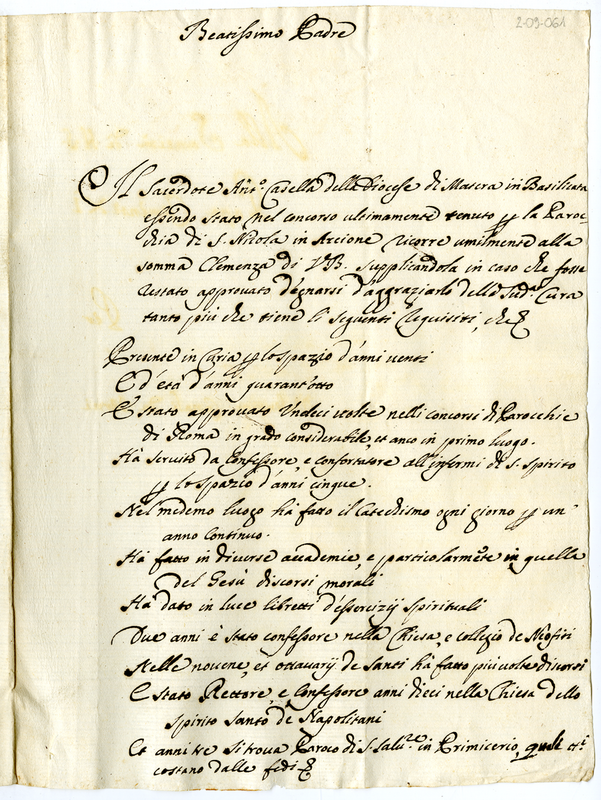 2-09-061
Beatissimo Padre
Il Sacerdote Ant.o Casella della Diocese di Matera in Basilicata
essendo stato nel concorso ultimamente tenuto p la Paroc=
chia di S. Nicola in Arcione ricorre umilmente alla
somma Clemenza di VB. supplicandola in caso che fosse
restato approvato degnarsi d'aggraziarlo dello Sud.a Cura
tanto più che tiene li seguenti Requisiti, che
Presente in Curia p lo spazio d'anni venti
E d'età d'anni quarant'otto
È stato approvato Undeci volte nelli concorsi di Parocchie
di Roma in grado considerabile, et anco in primo luogo.
Ha servito da Confessore, e confortatore all'infermi di S. Spirito
p lo spazio d'anni cinque.
Nel medemo luogo hà fatto il Catechismo ogni giorno p un'
anno Continuo.
Hà fatto in diverse accademie, e particolarmēte in quella
del Gesù discorsi morali
Hà dato in luce libretti d'essercizij spirituali
Due anni è stato confessore nella Chiesa, e collegio de Neofiti
Nelle novene, et ottavarij de Santi hà fatto più volte discorsi
E stato Rettore, e Confessore anni dieci nella Chiesa dello
Spirito Santo de Napolitani
Et anni tre si trova Paroco di S. Salv.re in Primicerio, quali
costano dalle fedi